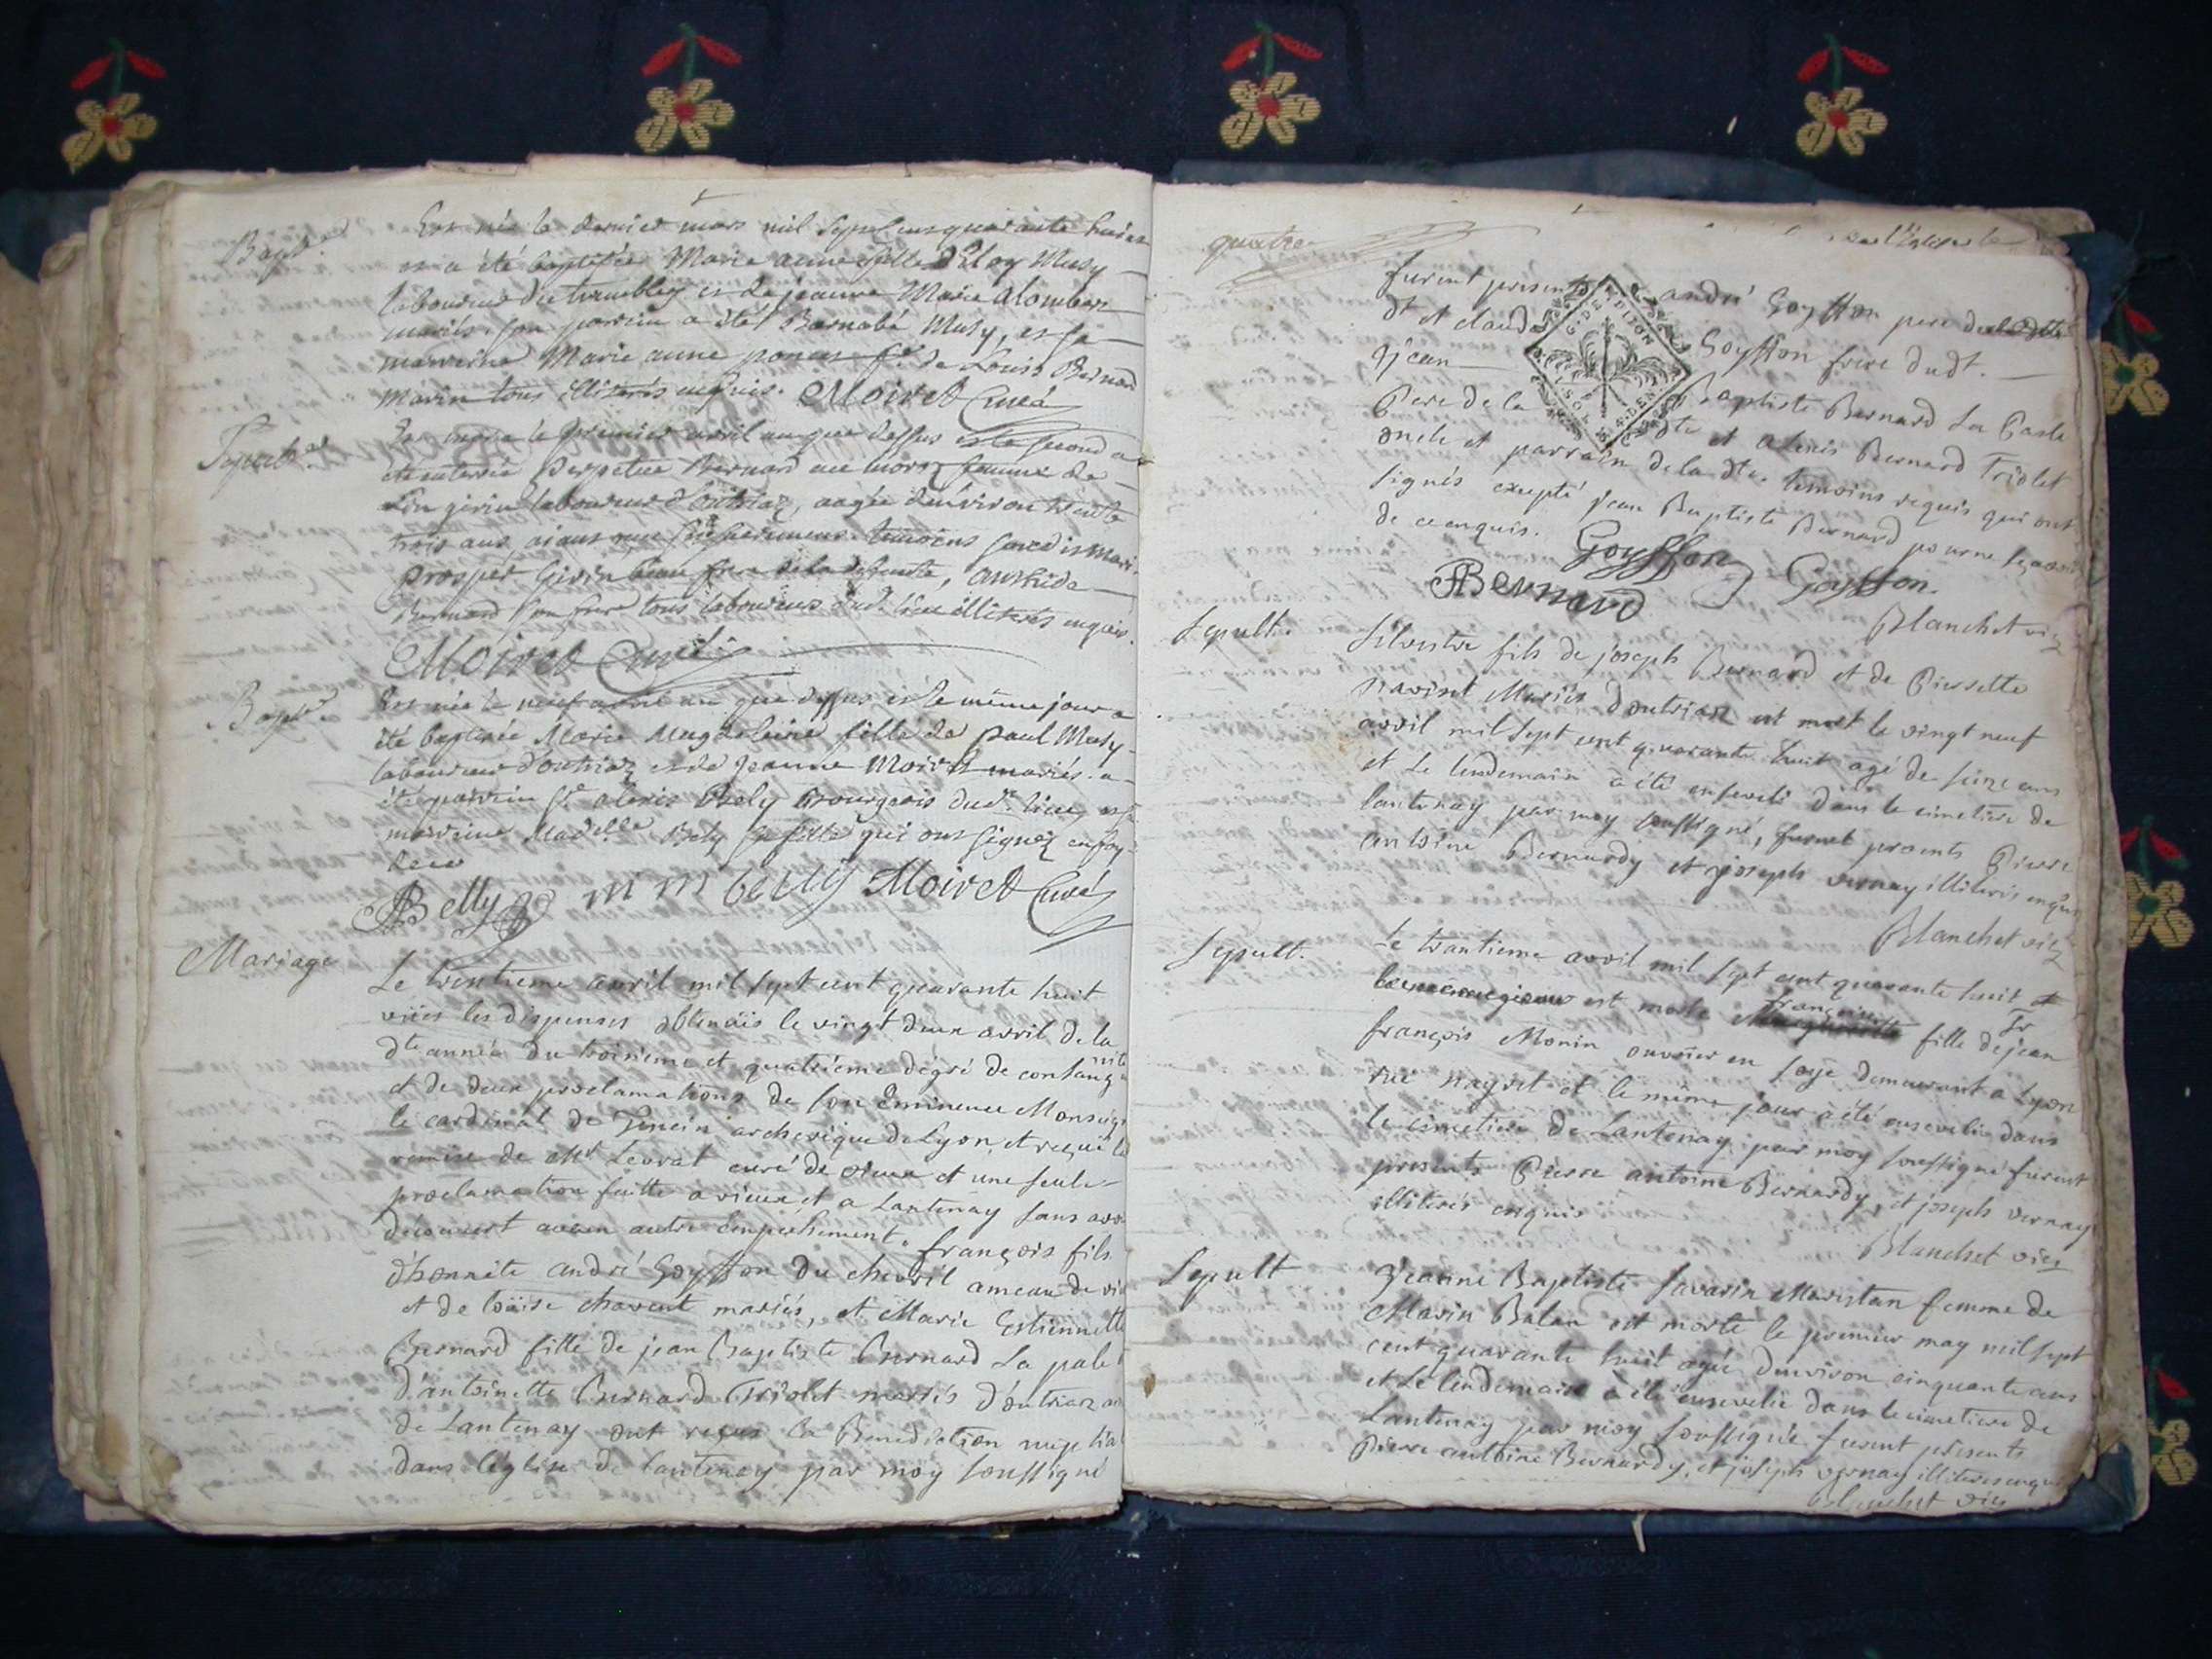 Bapt.
Est née le dernier mars mil sept cens quarante huit
et a été baptisée Marie anne fille d'Eloy Musy
laboureur du trembley et de jeanne Marie alombert
mariés. son parrein a été Barnabé Musy, et sa
marreine Marie anne poncet fe. de Louis Bernard
marin tous illiterés enquis. Moiret Curé
Sepult.
Est morte le premier avril an que dessus et le second a
été enterrée perpetue Bernard femme de
girin laboureur d'outriaz, aagée d'environ trente
trois ans, aiant receu temoins
prosper Girin beau frere de la defunte,
Bernard son frere tous laboureurs dud. lieu illiterés enquis.
Moiret Curé
Bapt.
Est née le neuf avril an que dessus et le même jour a
été baptisée Marie Magdeleine fille de paul Musy
laboureur d'outriaz et de jeanne Moiret mariés. a
été parrein Sr. alexis Bely Bourgeois dud. lieu, et sa
marreine Madelle Bely sa fille qui ont signez
Belly m m belly Moiret Curé
Mariage
Le trentieme avril mil sept cent quarante huit
vües les dispenses obtenüis le vingt deux avril de la
dte année du troisieme et quatrieme dégré de consang
nité
et de deux proclamations de son Eminence Monseigr
le cardinal de Tencin archevêque de Lyon, et reçue la
remise de Mr Levrat curé de vieux et une seule
proclamation faitte a vieux et a Lantenay sans avoir
découvert aucun autre empechement. françois fils
d'honnête andré Goyffon du chevril ameau de
et de loüise chavent mariés, et Marie Estiennette
Bernard fille de jean Baptiste Bernard La pale
d'antoinette Bernard Triolet mariés d'outriaz
de Lantenay ont reçus la Benediction nuptial
dans l'église de lantenay par moy soussigné
quatre
furent presents andré Goyffon pere
dt et claude Goyffon frere dudt.
Jean Baptiste Bernard La Pasle
Pere de la dte et alexis Bernard Triolet
oncle et parrain de la dte. temoins requis qui ont
signés excepté jean Baptiste Bernard pour ne sçavoir
de ce enquis. Goyffon Goyffon.
ABernard
Blanchet vic
Sepult.
Silvestre fils de joseph Bernard et de Pierrette
Mariés d'outriaz est mort le vingt neuf
avril mil sept cent quarante huit agé de seize ans
et Le lendemain a été enseveli dans le cimetiere de
lantenay par moy soussigné, furent presents Pierre
antoine Bernardy et joseph vernay illiterés enquis
Blanchet vic
Sepult.
Le trantieme avril mil sept cent quarante huit
est morte françoise fille de jean
françois Monin ouvrier en soye demeurant a Lyon
rüe et le même jour a été ensevelie dans
le cimetiere de Lantenay par moy soussigné furent
presents Pierre antoine Bernardy, et joseph vernay
illiterés enquis
Blanchet vic
Sepult
Jeanne Baptiste Savarin femme de
Marin Balan est morte le premier may mil sept
cent quarante huit agée d'environ cinquante ans
et Le lendemain a été ensevelie dans le cimetiere de
Lantenay par moy soussigné furent présents
Pierre antoine Bernardy, et joseph vernay illiterés enquis
Blanchet vic